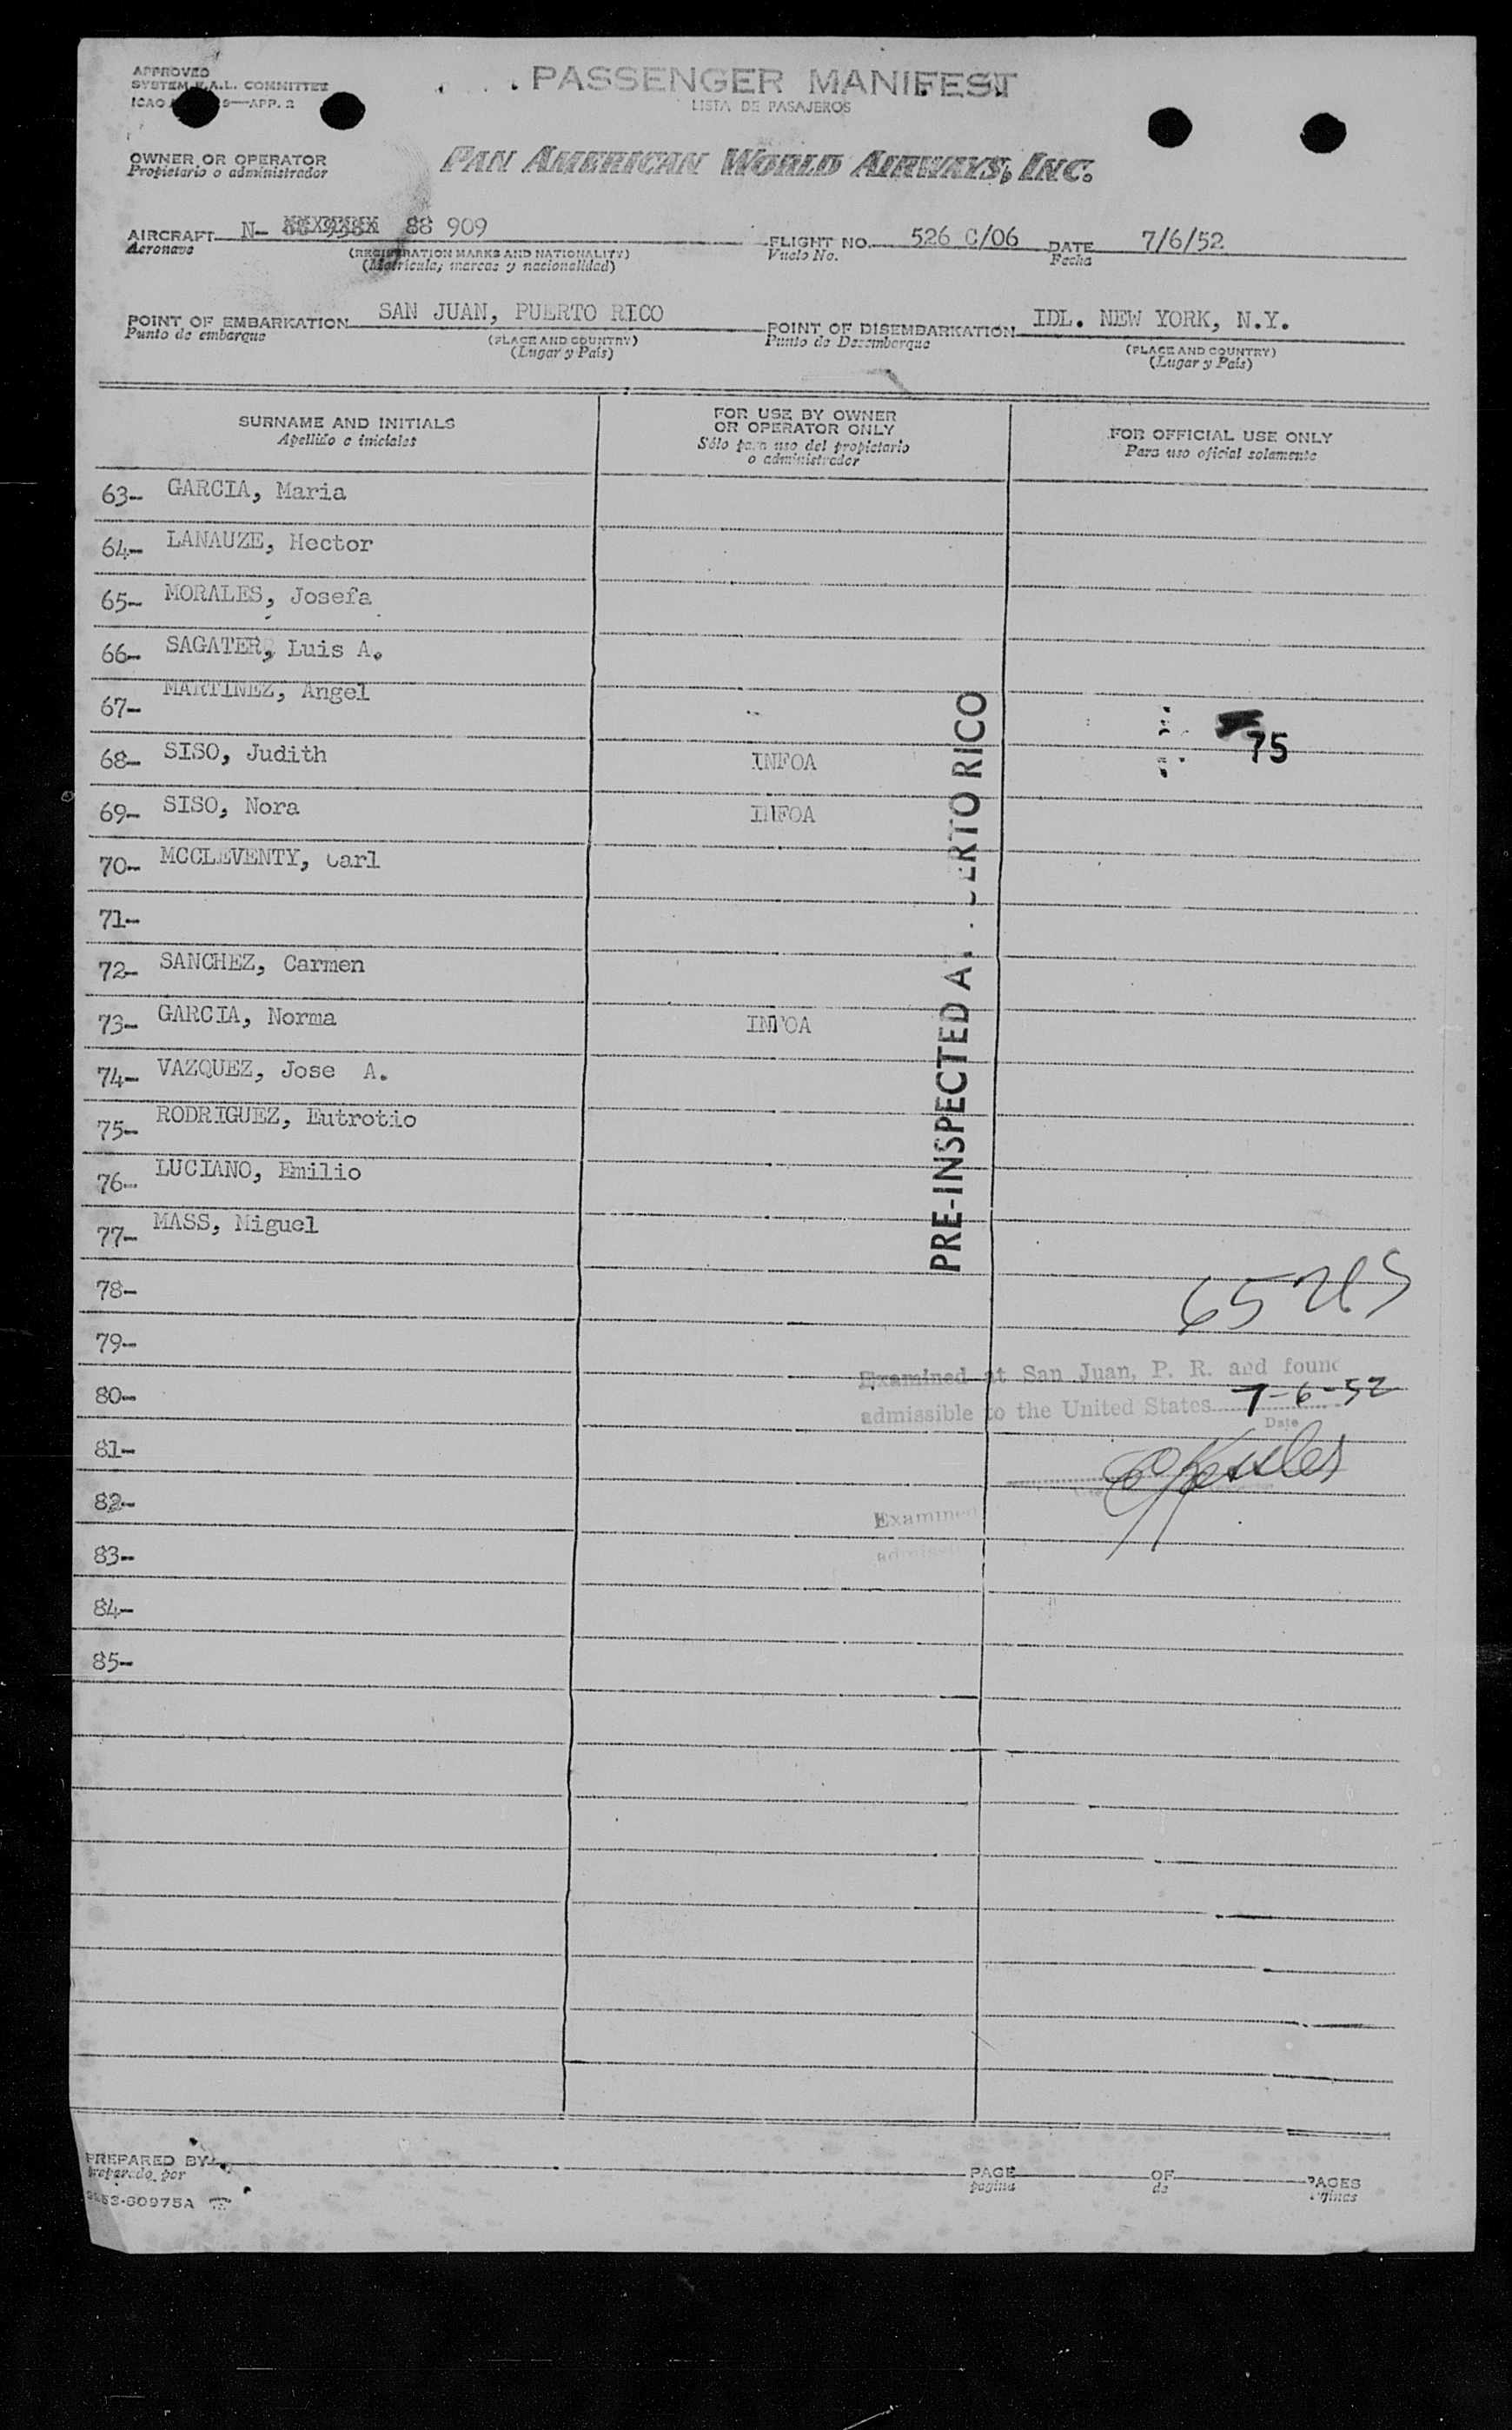 APPROVED
SYSTEM F.A.L. COMMITTEE
ICAO 9—APP. 2
PASSENGER MANIFEST
LISTA DE PASAJEROS
OWNER OR OPERATOR
Propietario o administrador
PAN AMERICAN WORLD AIRWAYS, INC.
AIRCRAFT N- 88 909
Aeronave
(REGISTRATION MARKS AND NATIONALITY)
(Matrícula, marcas y nacionalidad)
FLIGHT NO. 526 C/06 DATE 7/6/52
Vuelo No. Fecha
POINT OF EMBARKATION SAN JUAN, PUERTO RICO
Punto de embarque
(PLACE AND COUNTRY)
(Lugar y País)
POINT OF DISEMBARKATION IDL. NEW YORK, N.Y.
Punto de Desembarque
(PLACE AND COUNTRY)
(Lugar y País)
SURNAME AND INITIALS
Apellido e iniciales
FOR USE BY OWNER
OR OPERATOR ONLY
Sólo para uso del propietario
o administrador
FOR OFFICIAL USE ONLY
Para uso oficial solamente
63- GARCIA, Maria
64- LANAUZE, Hector
65- MORALES, Josefa
66- SAGATER, Luis A.
67- MARTINEZ, Angel
75
68- SISO, Judith INFOA
69- SISO, Nora INFOA
70- MCCLEVENTY, Carl
71-
72- SANCHEZ, Carmen
73- GARCIA, Norma INFOA
74- VAZQUEZ, Jose A.
75- RODRIGUEZ, Eutrotio
76- LUCIANO, Emilio
77- MASS, Miguel
PRE-INSPECTED A . ERTO RICO
78-
65 US
79-
80-
Examined at San Juan, P. R. and found
admissible to the United States 7-6-52
Date
81-
82-
Examined
83-
84-
85-
PREPARED BY
Preparado por
PAGE OF PAGES
página de
60975A